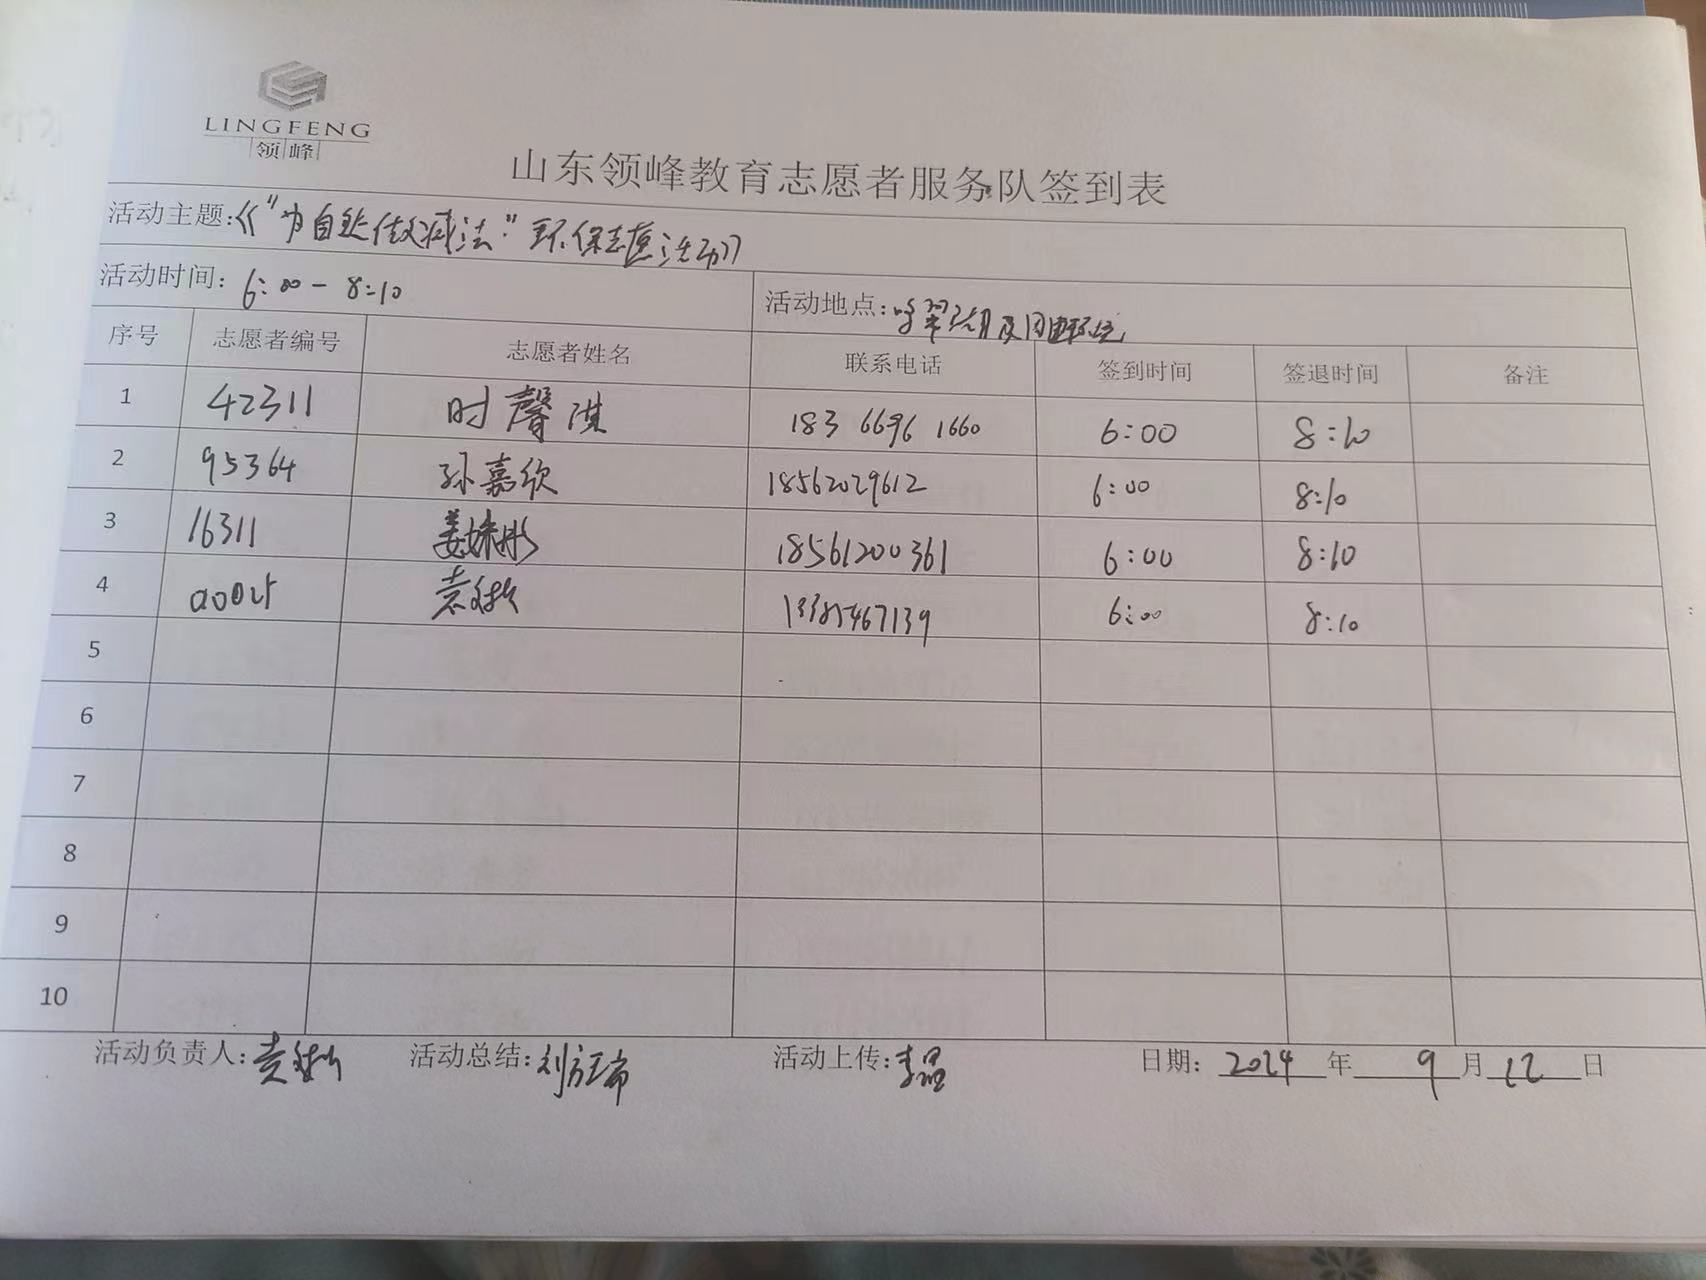 LINGFENG
领峰
山东领峰教育志愿者服务队签到表
活动主题:《“为自然做减法”环保志愿活动》
活动时间: 6:00-8:10 活动地点:
序号 志愿者编号 志愿者姓名 联系电话 签到时间 签退时间 备注
1 42311 时馨淇 183 6696 1660 6:00 8:10
2 95364 孙嘉欣 18562029612 6:00 8:10
3 16311 姜姝彤 18561200361 6:00 8:10
4 6:00 8:10
5
6
7
8
9
10
活动负责人: 活动总结: 活动上传:李昷 日期: 2024 年 9 月 12 日